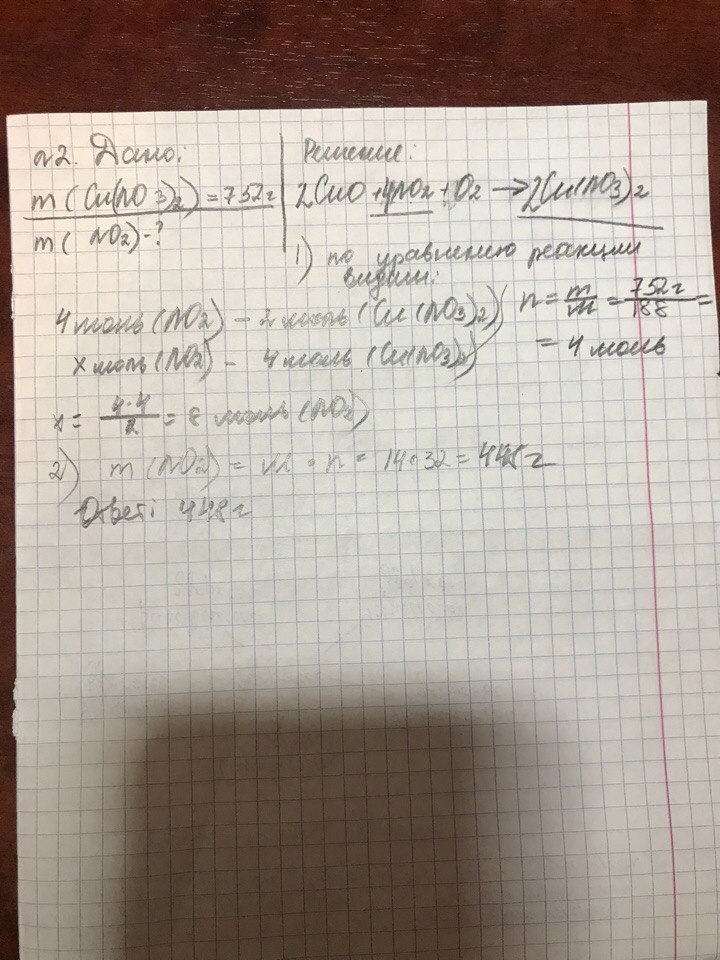 №2. Дано:
m(Cu(NO3)2) = 752г
m(NO2) - ?
Решение:
2CuO + 4NO2 + O2 → 2Cu(NO3)2
1) по уравнению реакции
видим:
4 моль (NO2) - 2 моль (Cu(NO3)2)
x моль (NO2) - 4 моль (Cu(NO3)2)
n = m/M = 752г/188 =
= 4 моль
x = 4·4/2 = 8 моль (NO2)
2) m(NO2) = M · n = 14·32 = 448г
Ответ: 448г